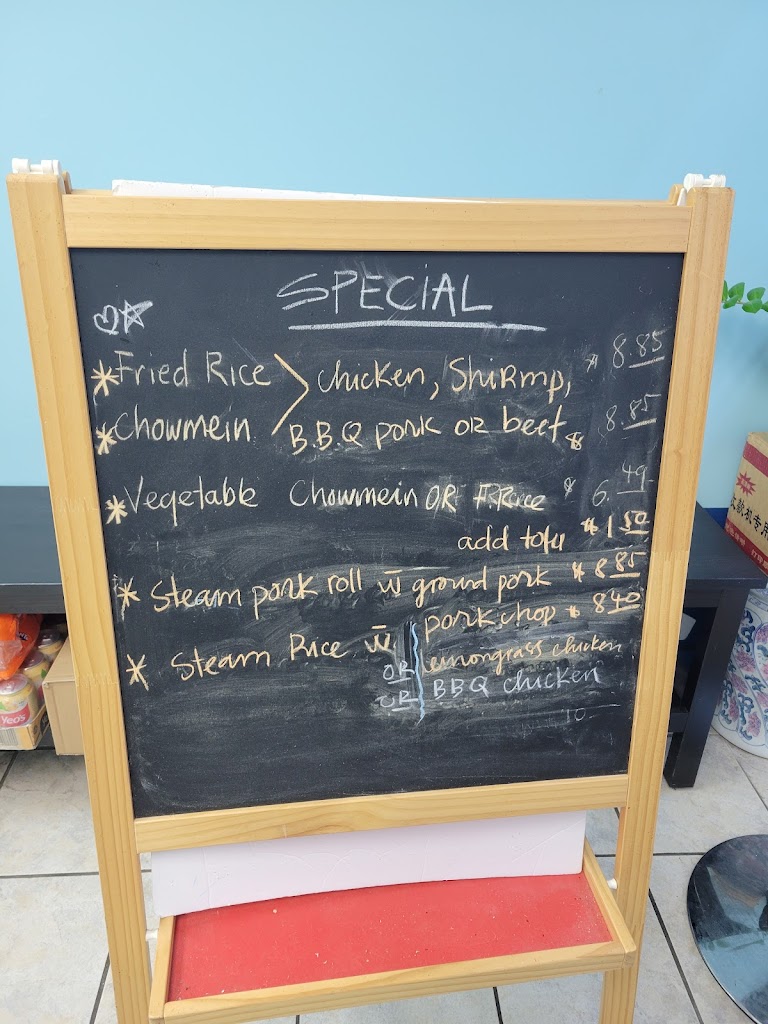 SPECIAL
* Fried Rice > Chicken, ShiRmp, $ 8.85
* Chowmein B.B.Q pork OR beef $ 8.85
* Vegetable Chowmein OR F.Rice $ 6.49
add tofu $ 1.50
* Steam pork roll w̄ ground pork $ 8.85
* Steam Rice w̄ pork chop $ 8.40
OR lemongrass chicken
OR BBQ chicken
10
Yeo's